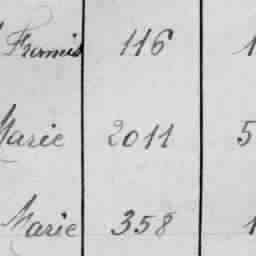 Francis 116 1
Marie 2011 5
Marie 358 1